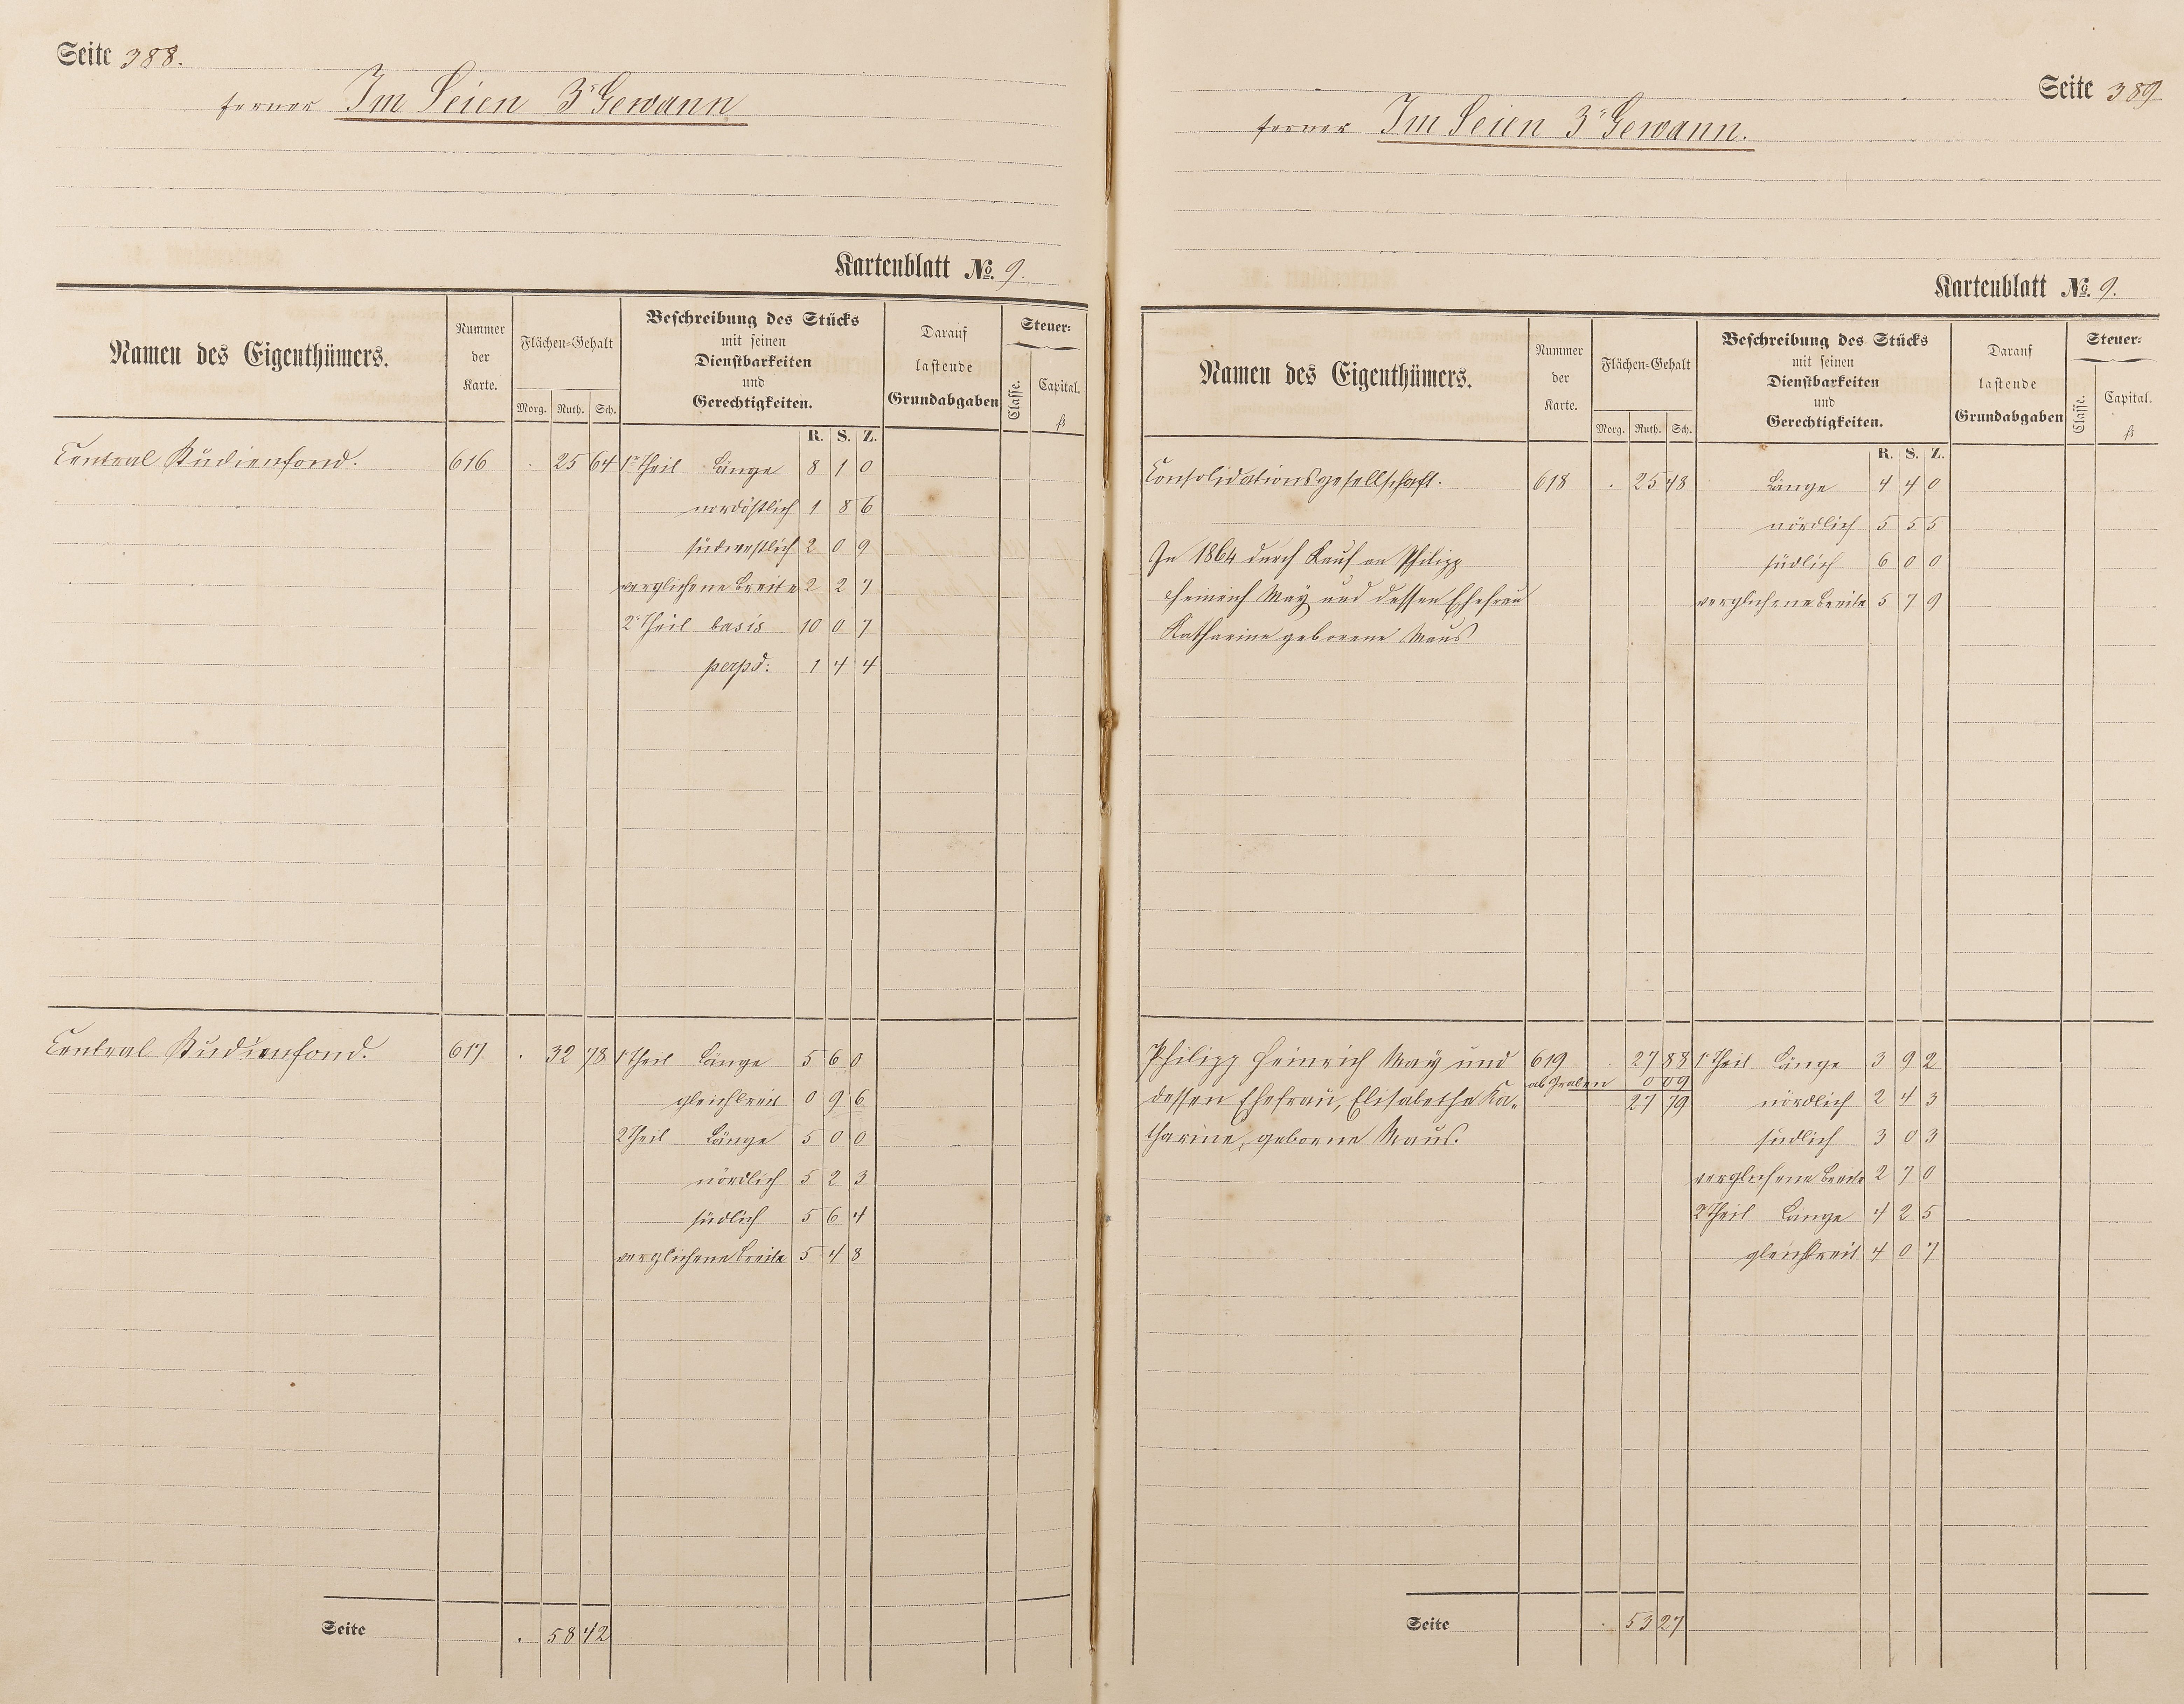 Seite 388.
ferner Im Seien 3r Gewann
Kartenblatt No. 9.
Namen des Eigenthümers.
Nummer der Karte.
Flächen-Gehalt
Morg. Ruth. Sch.
Beschreibung des Stücks
mit seinen
Dienstbarkeiten
und
Gerechtigkeiten.
R. S. Z.
Darauf
lastende
Grundabgaben
Steuer-
Classe. Capital.
fl
Central Studienfond. 616 . 25 64 1r Theil Länge 8 1 0
nordöstlich 1 8 6
südwestlich 2 0 9
verglichene Breite 2 2 7
2r Theil basis 10 0 7
perpd: 1 4 4
Central Studienfond. 617 . 32 78 1r Theil Länge 5 6 0
gleichbreit 0 9 6
2 Theil Länge 5 0 0
nördlich 5 2 3
südlich 5 6 4
verglichene Breite 5 4 8
Seite . 58 42
Seite 389
ferner Im Seien 3r Gewann.
Kartenblatt No. 9.
Namen des Eigenthümers.
Nummer der Karte.
Flächen-Gehalt
Morg. Ruth. Sch.
Beschreibung des Stücks
mit seinen
Dienstbarkeiten
und
Gerechtigkeiten.
R. S. Z.
Darauf
lastende
Grundabgaben
Steuer-
Classe. Capital.
fl
Consolidationsgesellschaft. 618 . 25 48 Länge 4 4 0
nördlich 5 5 5
In 1864 durch Kauf an Philipp südlich 6 0 0
Heinrich May und dessen Ehefrau verglichene Breite 5 7 9
Katharine geborene Maus
Philipp Heinrich May und 619 . 27 88 1r Theil Länge 3 9 2
ab Graben 0 09
dessen Ehefrau, Elisabethe Ka- 27 79 nördlich 2 4 3
tharine, geborne Maus. südlich 3 0 3
verglichene Breite 2 7 0
2 Theil Länge 4 2 5
gleichbreit 4 0 7
Seite . 53 27